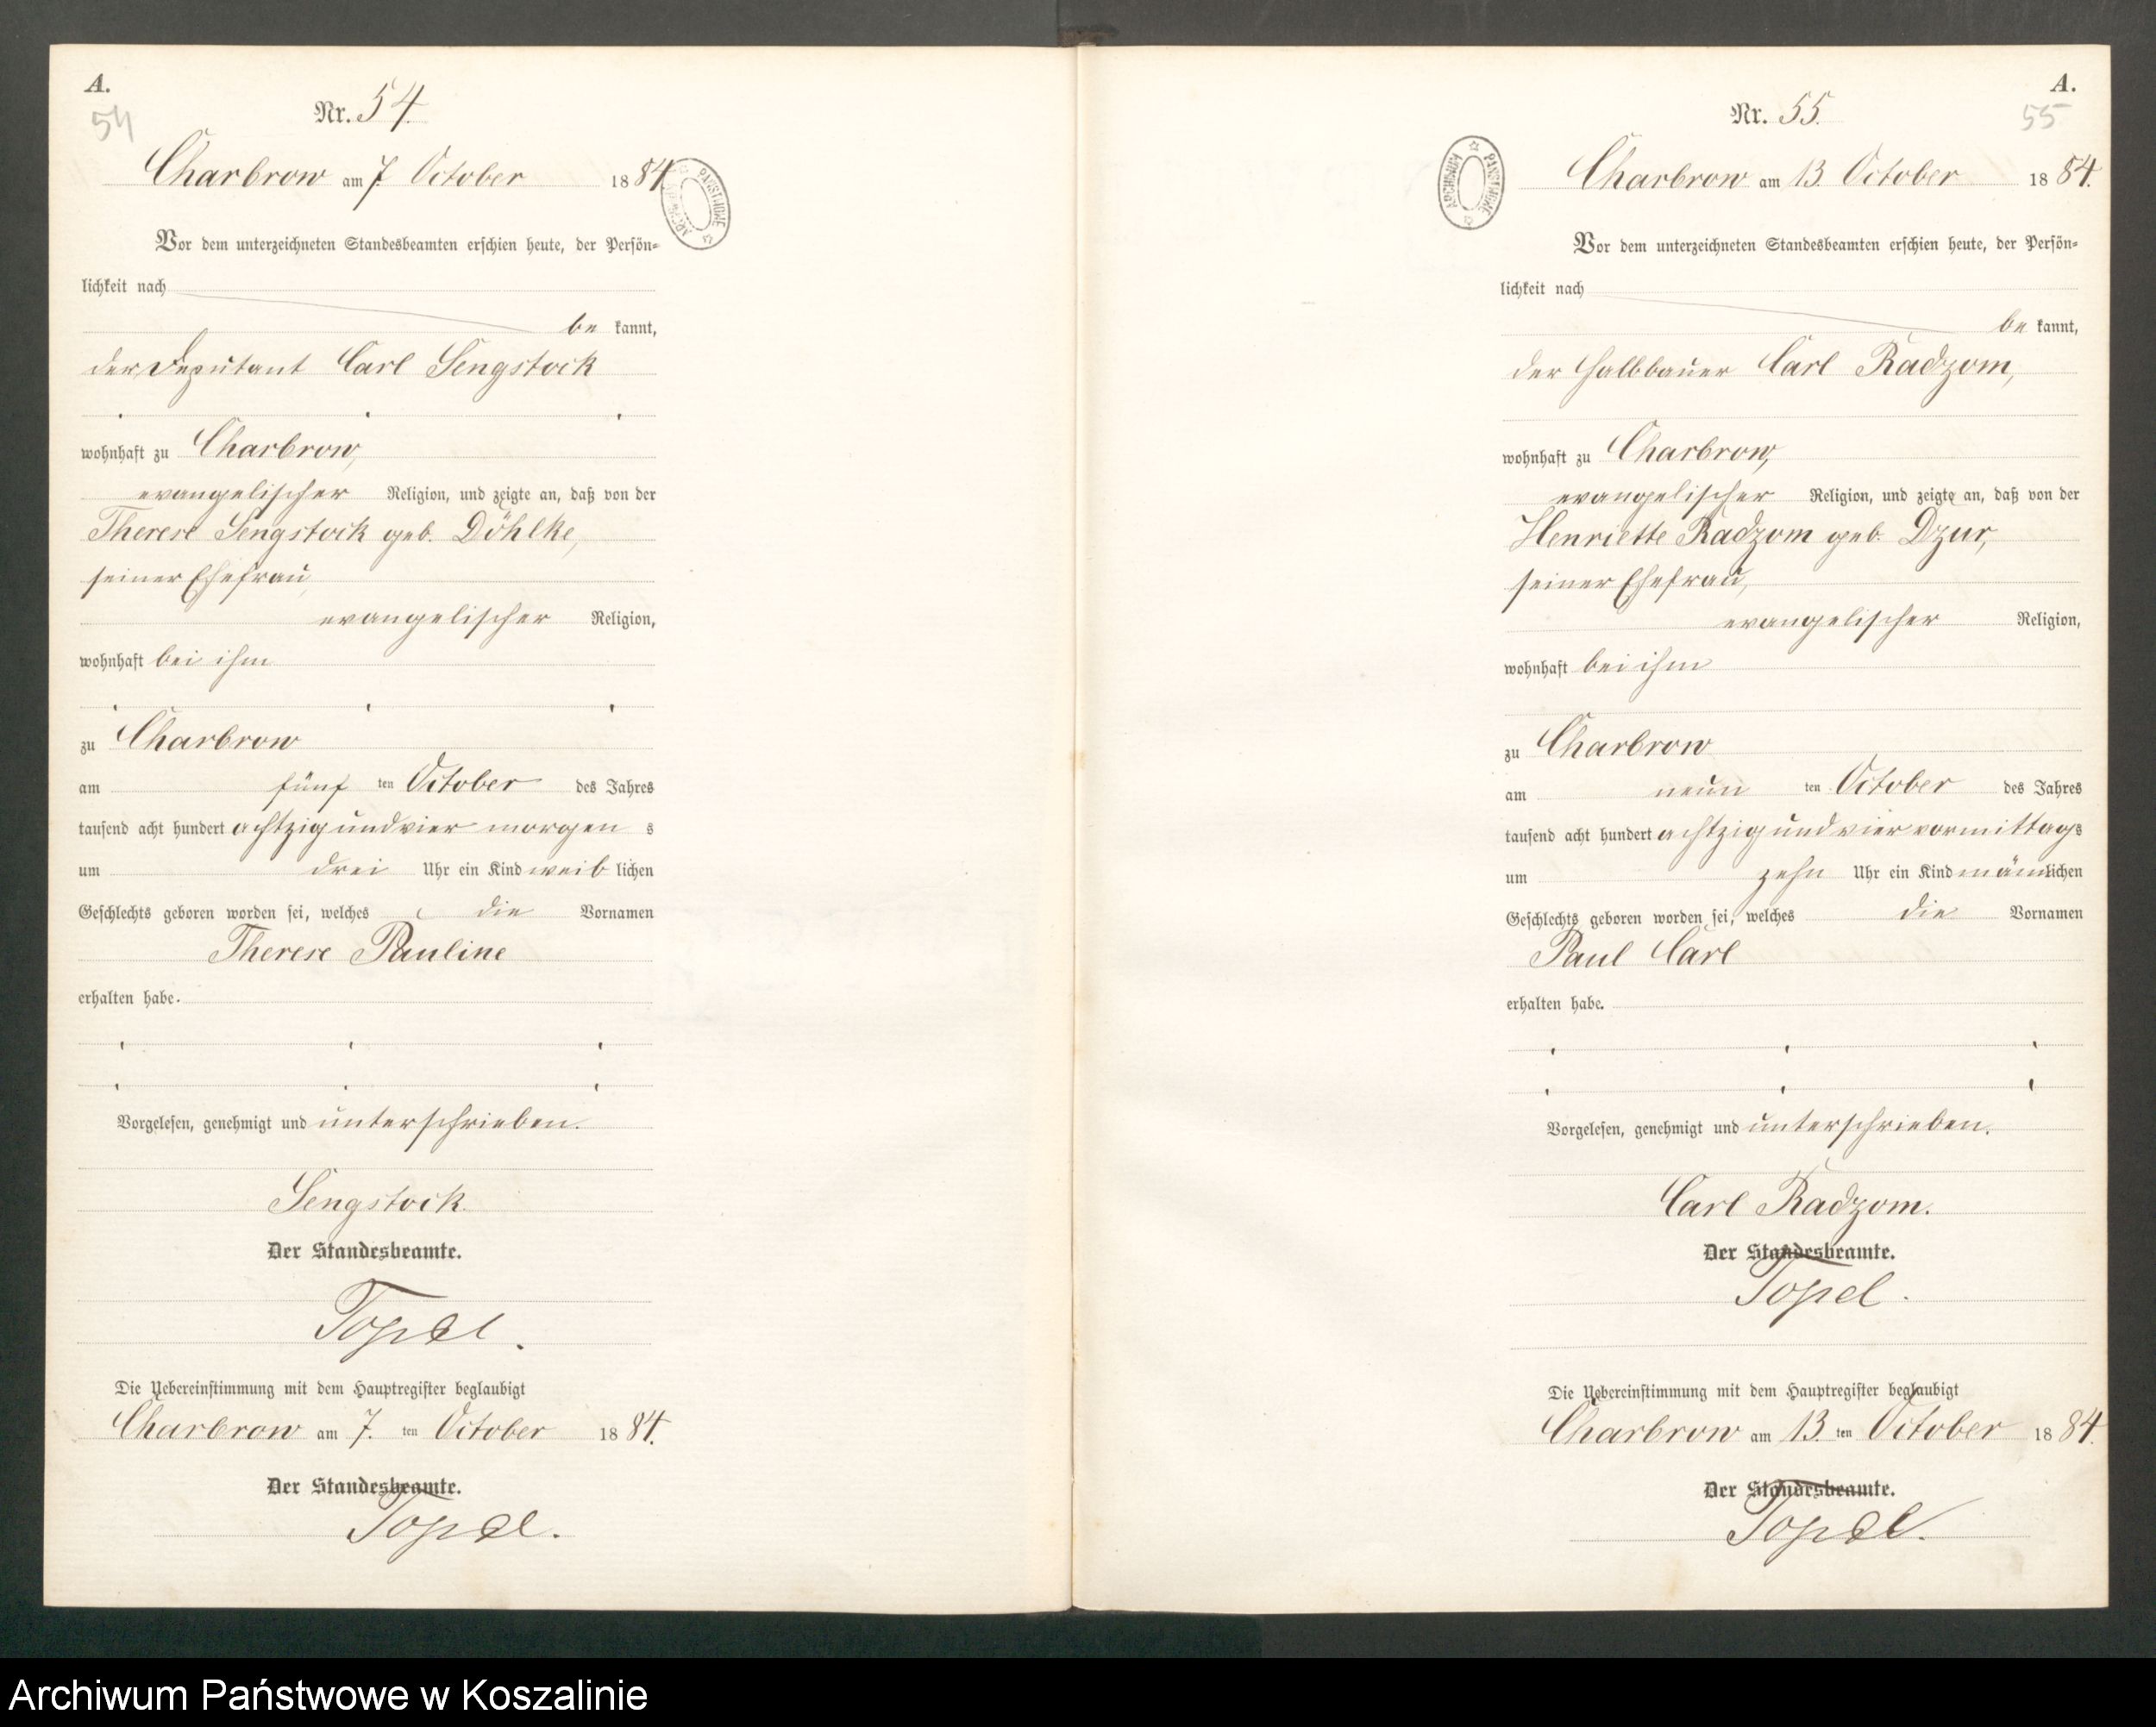 A.
54
Nr. 54.
Charbrow am 7. October 1884.
ARCHIWUM PAŃSTWOWE
Vor dem unterzeichneten Standesbeamten erschien heute, der Persön=
lichkeit nach
be kannt,
der Deputant Carl Sengstock
wohnhaft zu Charbrow,
evangelischer Religion, und zeigte an, daß von der
Therese Sengstock geb. Döhlke,
seiner Ehefrau,
evangelischer Religion,
wohnhaft bei ihm
zu Charbrow
am fünf ten October des Jahres
tausend acht hundert achtzig und vier morgen s
um drei Uhr ein Kind weib lichen
Geschlechts geboren worden sei, welches die Vornamen
Therese Pauline
erhalten habe.
Vorgelesen, genehmigt und unterschrieben.
Sengstock.
Der Standesbeamte.
Topel.
Die Uebereinstimmung mit dem Hauptregister beglaubigt
Charbrow am 7. ten October 1884.
Der Standesbeamte.
Topel.
A.
55
Nr. 55.
ARCHIWUM PAŃSTWOWE
Charbrow am 13. October 1884.
Vor dem unterzeichneten Standesbeamten erschien heute, der Persön=
lichkeit nach
be kannt,
der Halbbauer Carl Radzom,
wohnhaft zu Charbrow,
evangelischer Religion, und zeigte an, daß von der
Henriette Radzom geb. Dzur,
seiner Ehefrau,
evangelischer Religion,
wohnhaft bei ihm
zu Charbrow
am neun ten October des Jahres
tausend acht hundert achtzig und vier vormittags
um zehn Uhr ein Kind männlichen
Geschlechts geboren worden sei, welches die Vornamen
Paul Carl
erhalten habe.
Vorgelesen, genehmigt und unterschrieben.
Carl Radzom.
Der Standesbeamte.
Topel.
Die Uebereinstimmung mit dem Hauptregister beglaubigt
Charbrow am 13. ten October 1884.
Der Standesbeamte.
Topel.
Archiwum Państwowe w Koszalinie